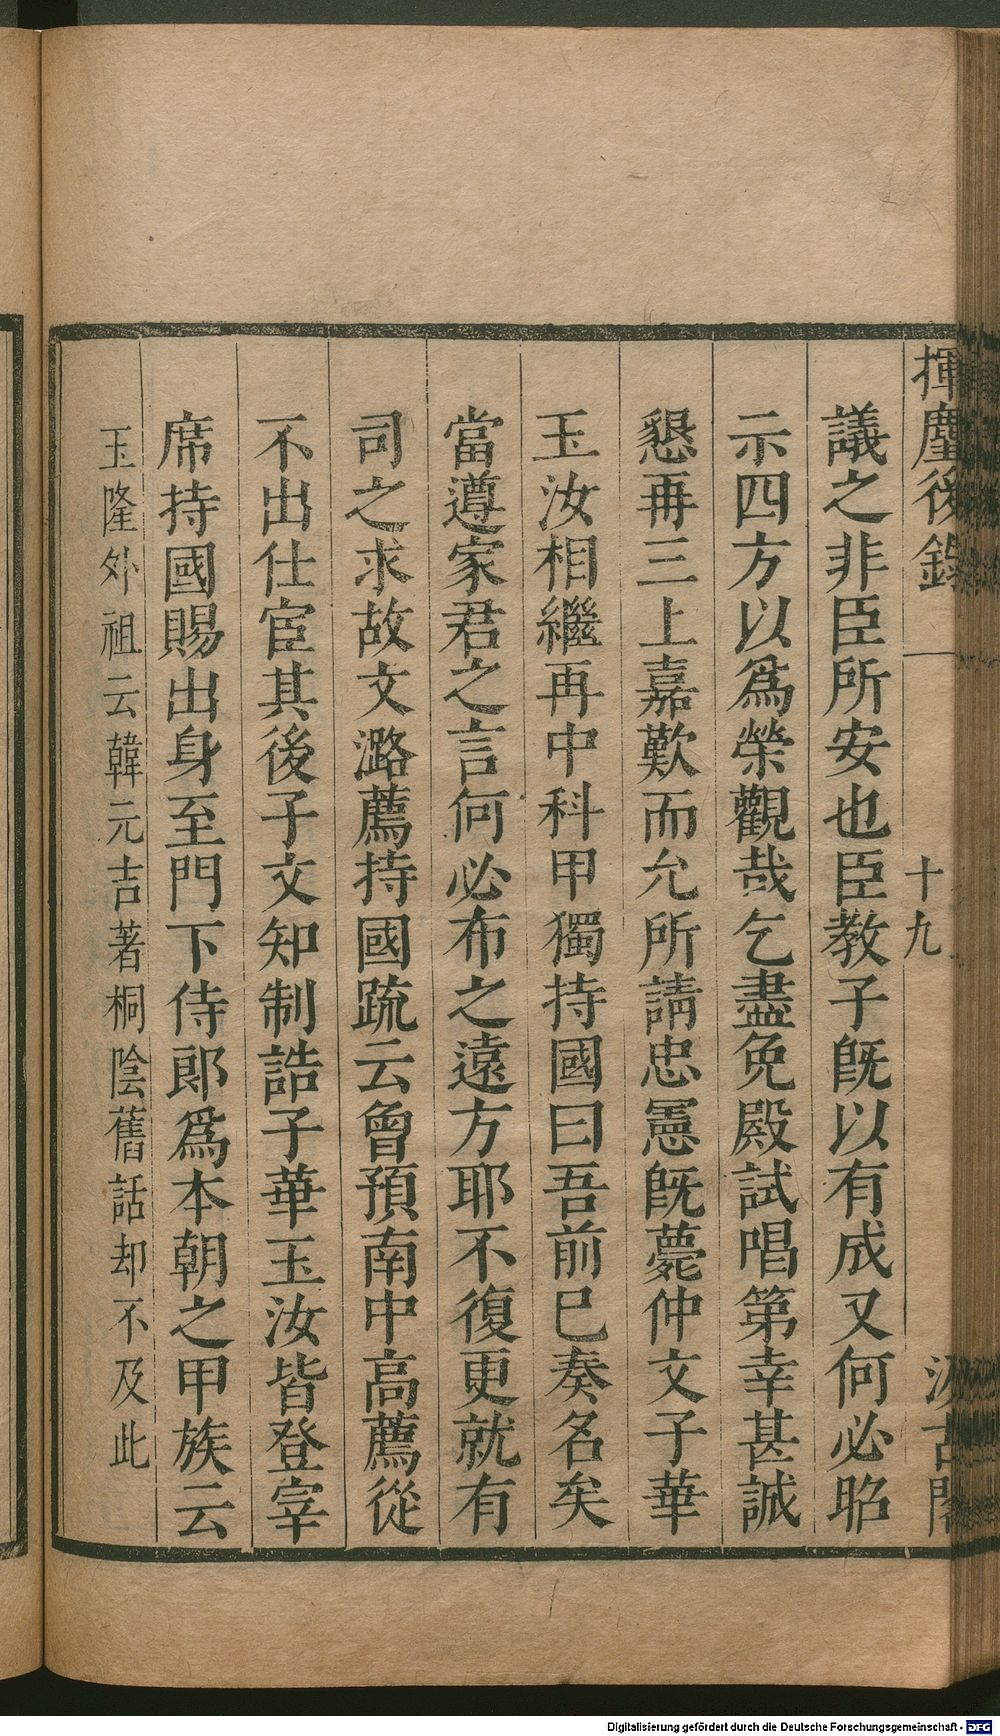 揮麈後錄 一 十九 汲古閣
議之非臣所安也臣教子旣以有成又何必昭
示四方以爲榮觀哉乞盡免殿試唱第幸甚誠
懇再三上嘉歎而允所請忠憲旣薨仲文子華
玉汝相繼再中科甲獨持國曰吾前已奏名矣
當遵家君之言何必布之遠方耶不復更就有
司之求故文潞薦持國疏云曾預南中高薦從
不出仕宦其後子文知制誥子華玉汝皆登宰
席持國賜出身至門下侍郎爲本朝之甲族云
玉隆外祖云韓元吉著桐陰舊話却不及此
Digitalisierung gefördert durch die Deutsche Forschungsgemeinschaft - DFG